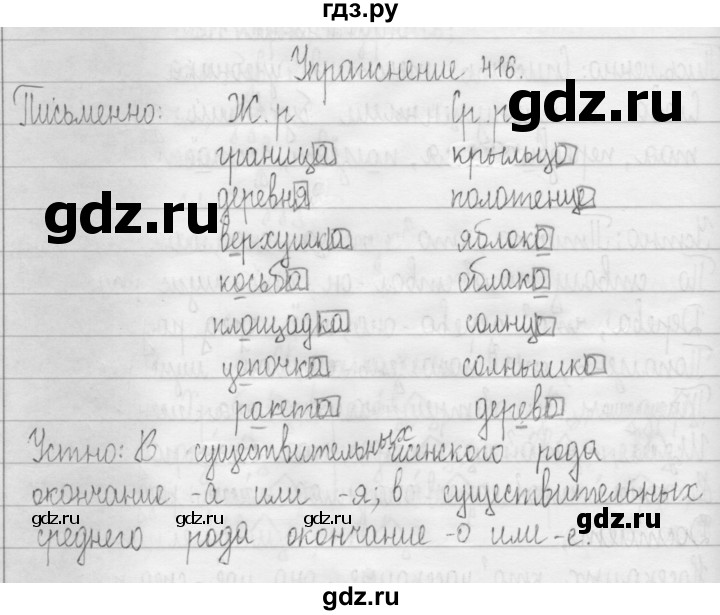 гдз.ру
Упражнение 416.
Письменно: Ж. р Ср. р
граница крыльцо
деревня полотенце
gdz.ru gdz.ru
верхушка яблоко
косьба облако
площадка солнце
gdz.ru gdz.ru
цепочка солнышко
ракета дерево
Устно: В существительных женского рода
окончание -а или -я; в существительных
gdz.ru gdz.ru gdz.ru gdz.ru
среднего рода окончание -о или -е.
gdz.ru